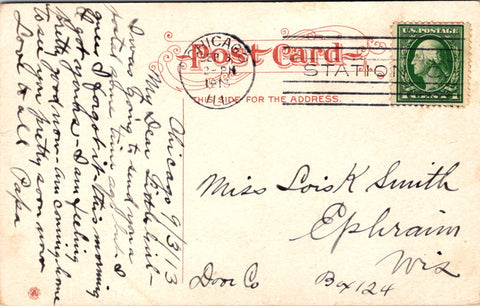 Post Card
THIS SIDE FOR THE ADDRESS.
CHICAGO
PM
STATION
U.S. POSTAGE
1 CENT 1
Chicago 9/3/13
My Dear Little Girl -
I was going to send you a
postal
guess I forgot it this morning
I got yours - I am feeling
pretty good now - am coming home
to see you pretty soon now
Love to all Papa
Miss Lois K Smith
Ephraim
Wis
Door Co
Box 124